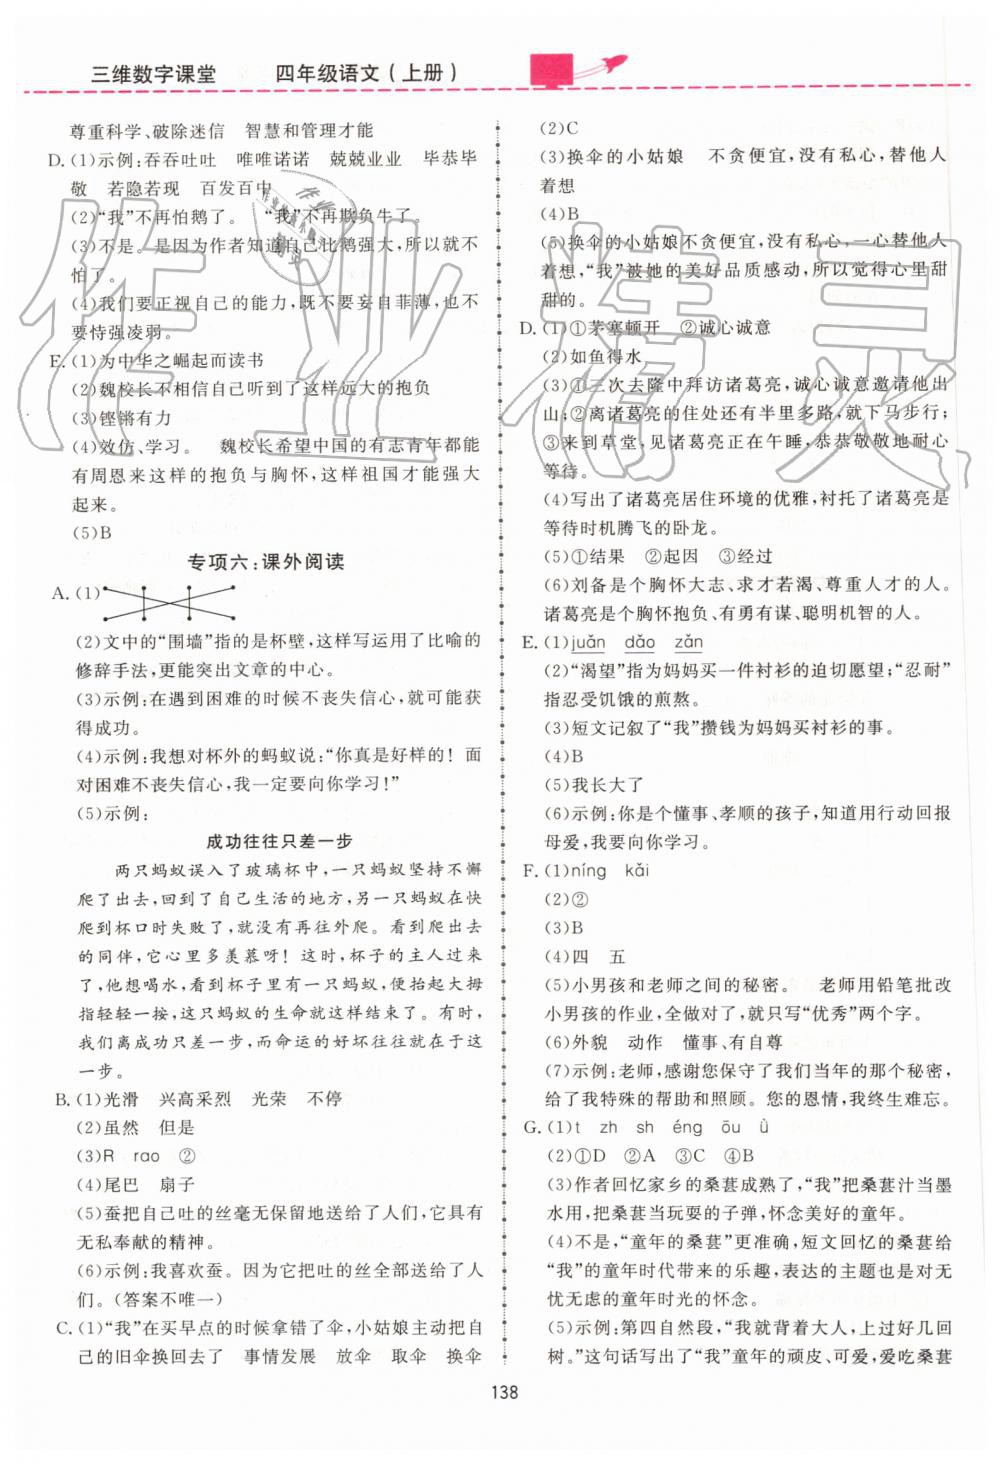 三维数字课堂 四年级语文(上册)
尊重科学、破除迷信 智慧和管理才能
D. (1)示例:吞吞吐吐 唯唯诺诺 兢兢业业 毕恭毕
敬 若隐若现 百发百中
(2)“我”不再怕鹅了。 “我”不再欺负牛了。
(3)不是。是因为作者知道自己比鹅强大,所以才不
怕了。
(4)我们要正视自己的能力,既不要妄自菲薄,也不
要恃强凌弱。
E. (1)为中华之崛起而读书
(2)魏校长不相信自己听到了这样远大的抱负
(3)铿锵有力
(4)效仿、学习。 魏校长希望中国的有志青年都能
有周恩来这样的抱负与胸怀,这样祖国才能强大
起来。
(5)B
专项六:课外阅读
A. (1)
(2)文中的“围墙”指的是杯壁,这样写运用了比喻的
修辞手法,更能突出文章的中心。
(3)示例:在遇到困难的时候不丧失信心,就能获
得成功。
(4)示例:我想对杯外的蚂蚁说:“你真是好样的! 面
对困难不丧失信心,我一定要向你学习!”
(5)示例:
成功往往只差一步
两只蚂蚁误入了玻璃杯中,一只蚂蚁坚持不懈
爬了出去,回到了自己生活的地方,另一只蚂蚁在快
爬到杯口时失败了,没有再往外爬。看到爬出去
的同伴,它心里多羡慕呀! 这时,杯子的主人过来
了,他想喝水,看到杯子里有一只蚂蚁,便抬起大拇
指轻轻一按,这只蚂蚁的生命就这样结束了。有时,
我们离成功只差一步,而命运的好坏往往就在这
一步。
B. (1)光滑 兴高采烈 光荣 不停
(2)虽然 但是
(3)R rao ②
(4)尾巴 扇子
(5)蚕把自己吐的丝毫无保留地送给了人们,它具有
无私奉献的精神。
(6)示例:我喜欢蚕。因为它把吐的丝全部送给了人
们。(答案不唯一)
C. (1)“我”在买早点的时候拿错了伞,小姑娘主动把自
己的旧伞换回去了 事情发展 放伞 取伞 换伞
(2)C
(3)换伞的小姑娘 不贪便宜,没有私心,替他人
着想
(4)B
(5)换伞的小姑娘不贪便宜,没有私心,一心替他人
着想,“我”被她的美好品质感动,所以觉得心里甜
甜的。
D. (1)①茅塞顿开 ②诚心诚意
(2)如鱼得水
(3)①三次去隆中拜访诸葛亮,诚心诚意邀请他出
山;②离诸葛亮的住处还有半里多路,就下马步行;
③来到草堂,见诸葛亮正在午睡,恭恭敬敬地耐心
等待。
(4)写出了诸葛亮居住环境的优雅,衬托了诸葛亮是
等待时机腾飞的卧龙。
(5)①结果 ②起因 ③经过
(6)刘备是个胸怀大志、求才若渴、尊重人才的人。
诸葛亮是个胸怀抱负、有勇有谋、聪明机智的人。
E. (1)juǎn dǎo zǎn
(2)“渴望”指为妈妈买一件衬衫的迫切愿望;“忍耐”
指忍受饥饿的煎熬。
(3)短文记叙了“我”攒钱为妈妈买衬衫的事。
(4)B
(5)我长大了
(6)示例:你是个懂事、孝顺的孩子,知道用行动回报
母爱,我要向你学习。
F. (1)níng kāi
(2)②
(3)B
(4)四 五
(5)小男孩和老师之间的秘密。 老师用铅笔批改
小男孩的作业,全做对了,就只写“优秀”两个字。
(6)外貌 动作 懂事、有自尊
(7)示例:老师,感谢您保守了我们当年的那个秘密,
给了我特殊的帮助和照顾。您的恩情,我终生难忘。
G. (1)t zh sh éng ōu ǜ
(2)①D ②A ③C ④B
(3)作者回忆家乡的桑葚成熟了,“我”把桑葚汁当墨
水用,把桑葚当玩耍的子弹,怀念美好的童年。
(4)不是,“童年的桑葚”更好,短文回忆的桑葚给
“我”的童年时代带来的乐趣,表达的主题也是对无
忧无虑的童年时光的怀念。
(5)示例:第四自然段,“我背着大人,上过好几回
树。”这句话写出了“我”童年的顽皮、可爱,爱吃桑葚
138
作业精灵